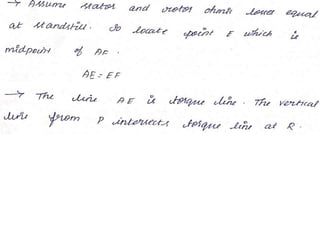 → Assume stator and rotor ohmic losses equal
at standstill. So locate point E which is
midpoint of AF.
AE = EF
→ The line AE is torque line. The vertical
line from P intersects torque line at R.